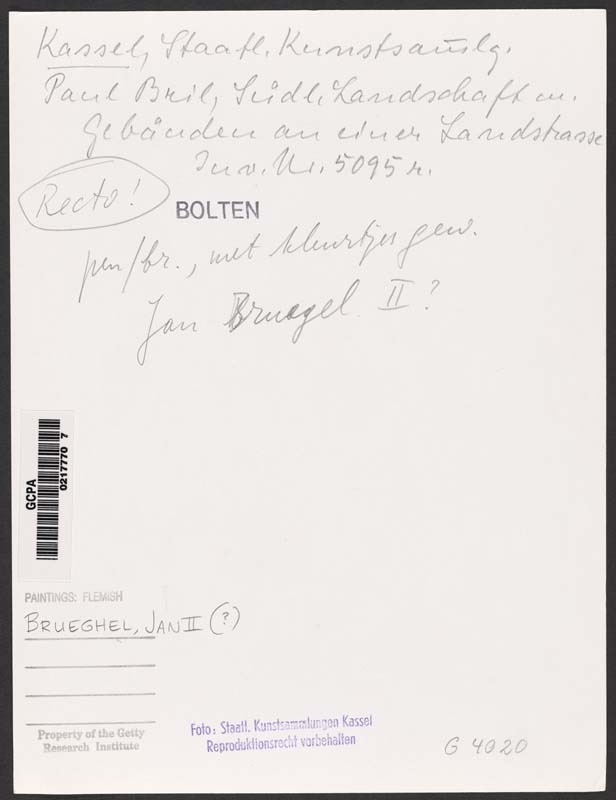 Kassel, Staatl. Kunstsamlg.
Paul Bril, Südl. Landschaft m.
Gebäuden an einer Landstrasse
Inv. Nr. 5095 r.
Recto!
BOLTEN
pen/br., met kleurtjes gew.
Jan Bruegel II ?
GCPA
0217770 7
PAINTINGS: FLEMISH
BRUEGHEL, JAN II (?)
Property of the Getty
Research Institute
Foto: Staatl. Kunstsammlungen Kassel
Reproduktionsrecht vorbehalten
G 4020